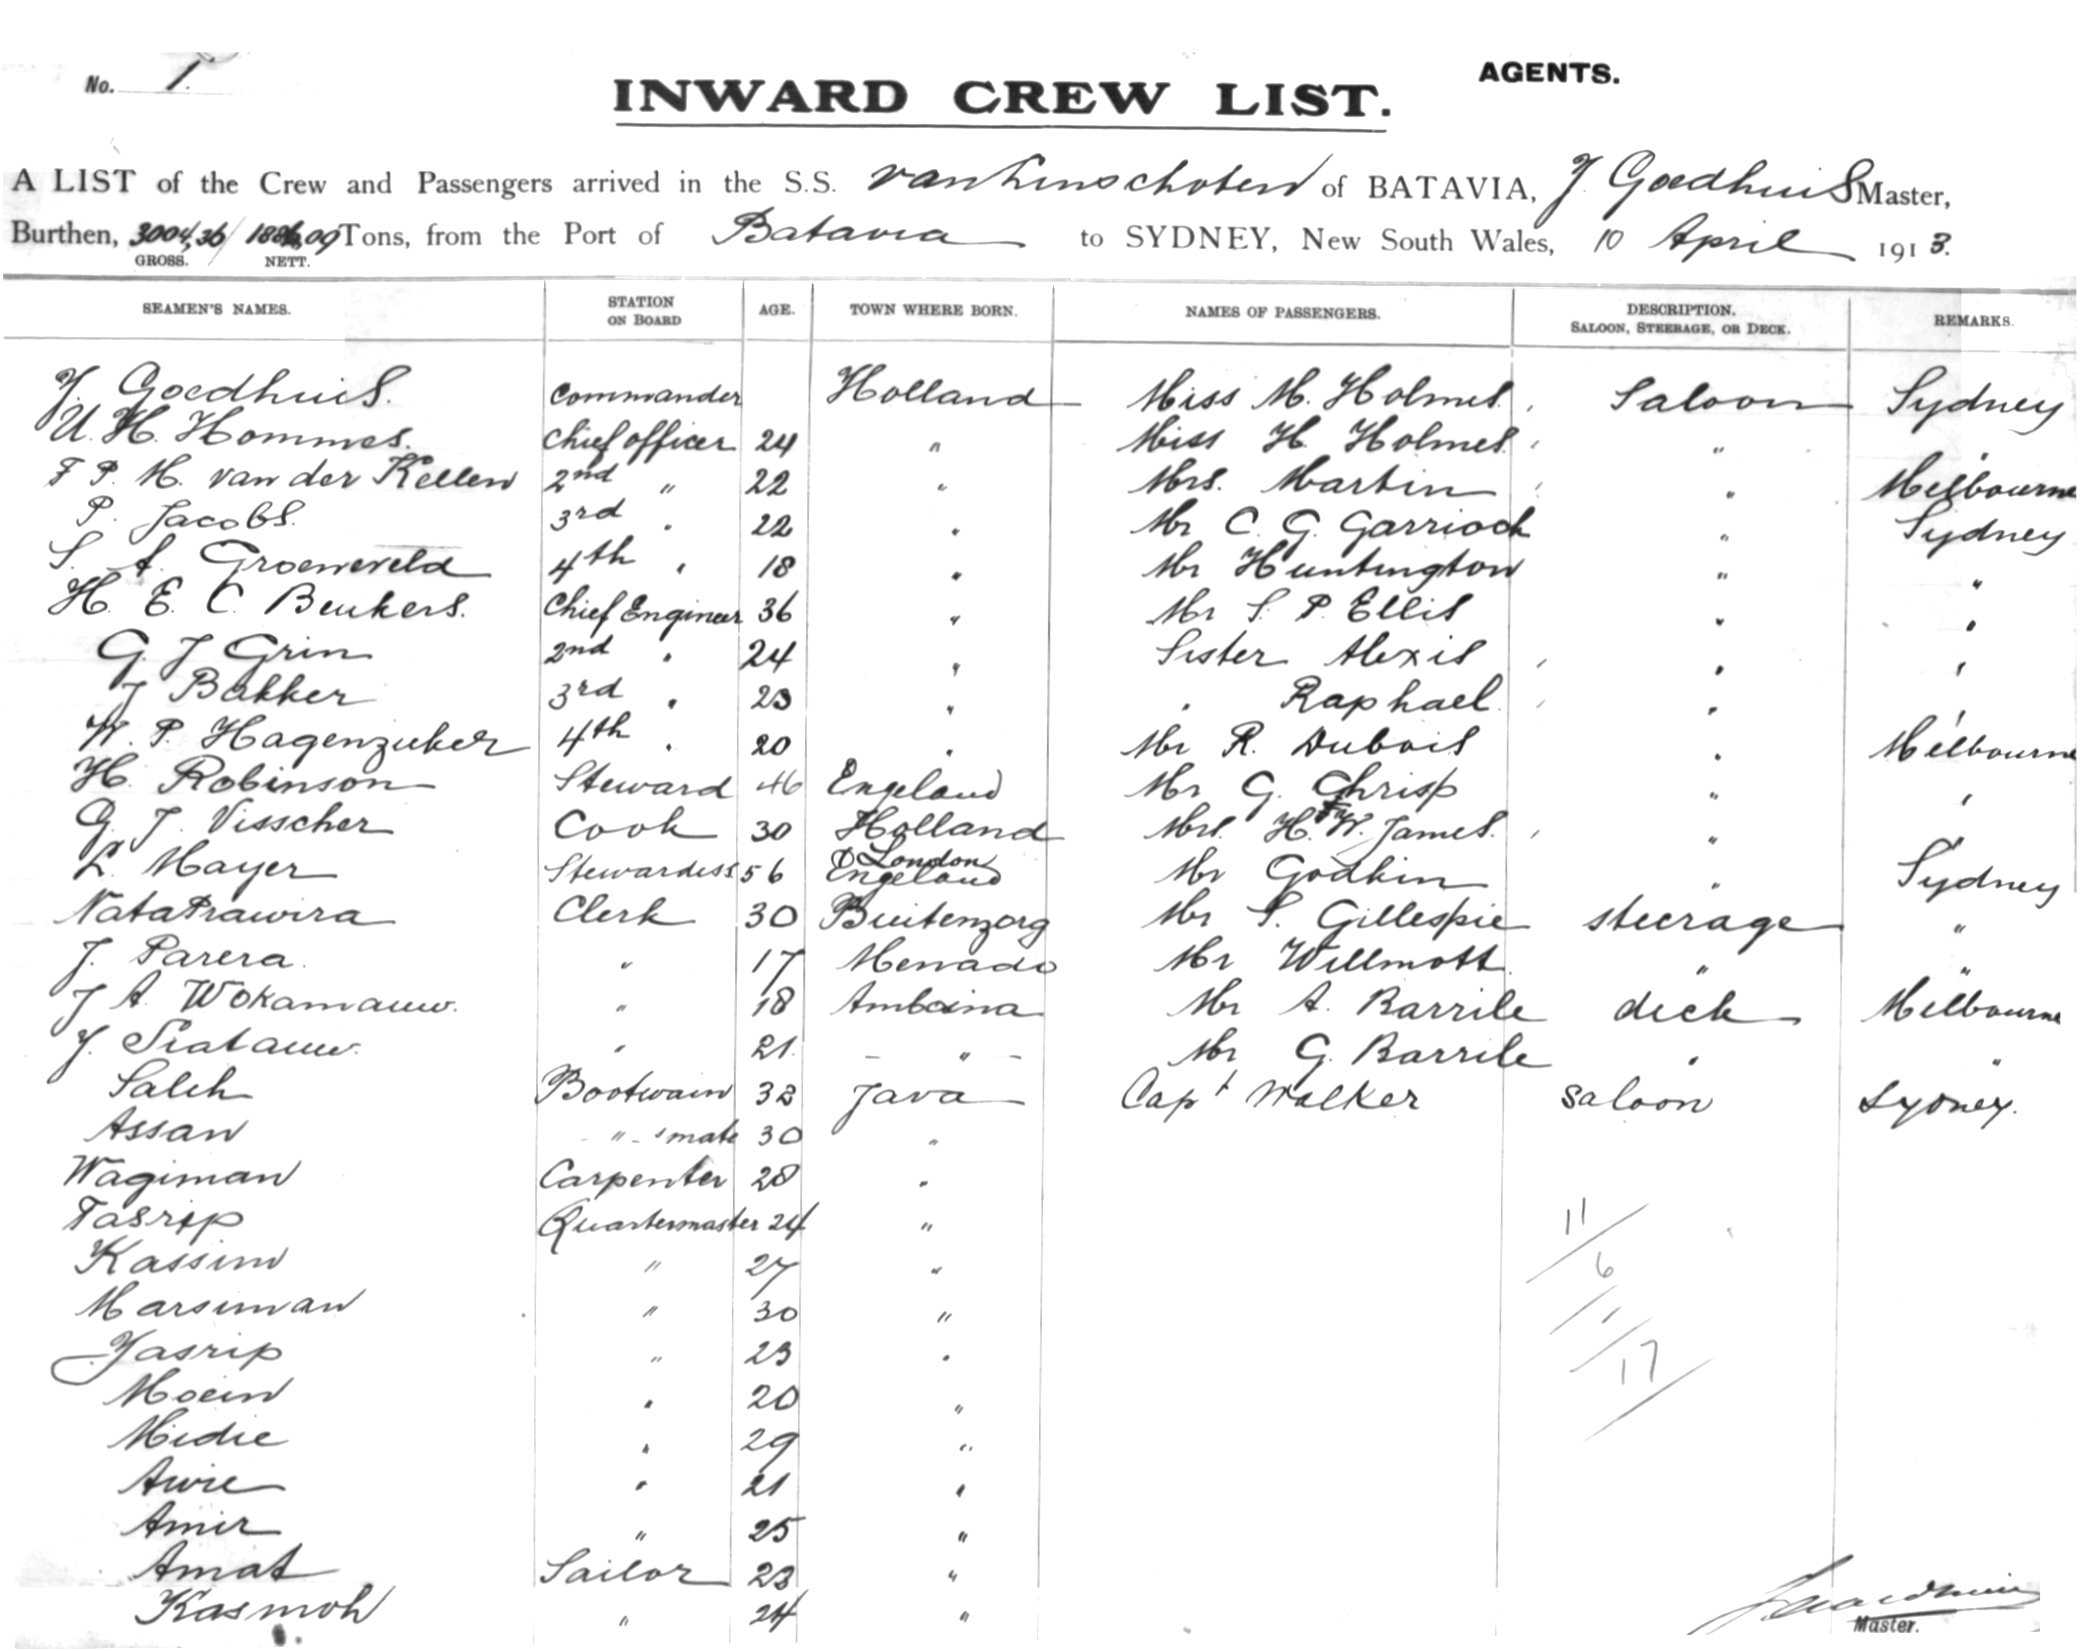 No. 1.
AGENTS.
INWARD CREW LIST.
A LIST of the Crew and Passengers arrived in the S.S. van Linschoten of BATAVIA, J. Goedhuis Master,
Burthen, 3004,36 / 1886,09 Tons, from the Port of Batavia to SYDNEY, New South Wales, 10 April 1913.
GROSS. NETT.
SEAMEN'S NAMES. STATION ON BOARD AGE. TOWN WHERE BORN. NAMES OF PASSENGERS. DESCRIPTION. SALOON, STEERAGE, OR DECK. REMARKS.
J. Goedhuis. Commander Holland Miss M. Holmes. Saloon Sydney
U. H. Hommes. Chief officer 24 " Miss H Holmes. " "
F P. M. van der Kellen 2nd " 22 " Mrs. Martin " Melbourne
P. Jacobs. 3rd " 22 " Mr C. G. Garrioch " Sydney
S. A. Groeneveld 4th " 18 " Mr Huntington " "
H. E. C. Beukers. Chief Engineer 36 " Mr S. P. Ellis " "
G. J Grin 2nd " 24 " Sister Alexis " "
J Bakker 3rd " 23 " " Raphael. " "
W. P. Hagenzieker 4th " 20 " Mr R. Dubois " Melbourne
H. Robinson Steward 46 Engeland Mr G. Chrisp " "
G. J. Visscher Cook 30 Holland Mrs. H. W. James. " "
L. Mayer Stewardess 56 London Engeland Mr Godkin " Sydney
Nataprawira Clerk 30 Buitenzorg Mr S. Gillespie steerage "
J. Parera. " 17 Menado Mr Willmott. " "
J A. Wokamauw. " 18 Amboina Mr A. Barrile deck Melbourne
J. Siatauw. " 21. - " - Mr G. Barrile " "
Saleh Bootwain 32 Java Capt Walker saloon Sydney.
Assan - " - 'mate 30 "
Wagiman Carpenter 28 "
Tasrip Quartermaster 24 " 11
Kassim " 27 " 6
Marsiman " 30 " 1
Jasrip " 23 " 17
Moein " 20 "
Midie " 29 "
Awie " 21 "
Amir " 25 "
Amat Sailor 23 "
Kasmoh " 24 "
J. Goedhuis
Master.